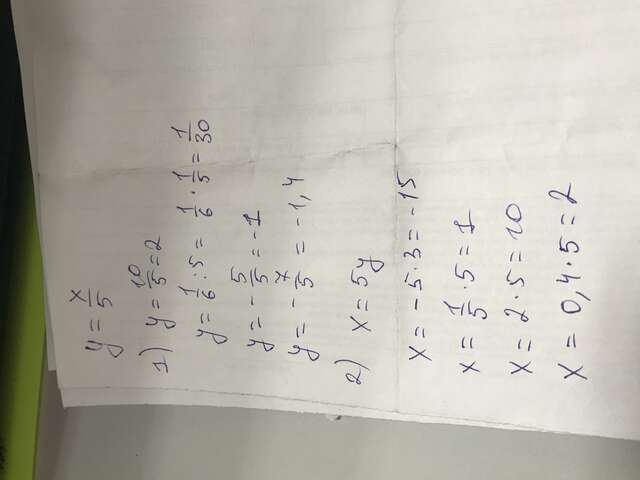 y = x/5
1) y = 10/5 = 2
y = 1/6 : 5 = 1/6 · 1/5 = 1/30
y = - 5/5 = -1
y = - 7/5 = -1,4
2) x = 5y
x = -5·3 = -15
x = 1/5 · 5 = 1
x = 2·5 = 10
x = 0,4·5 = 2